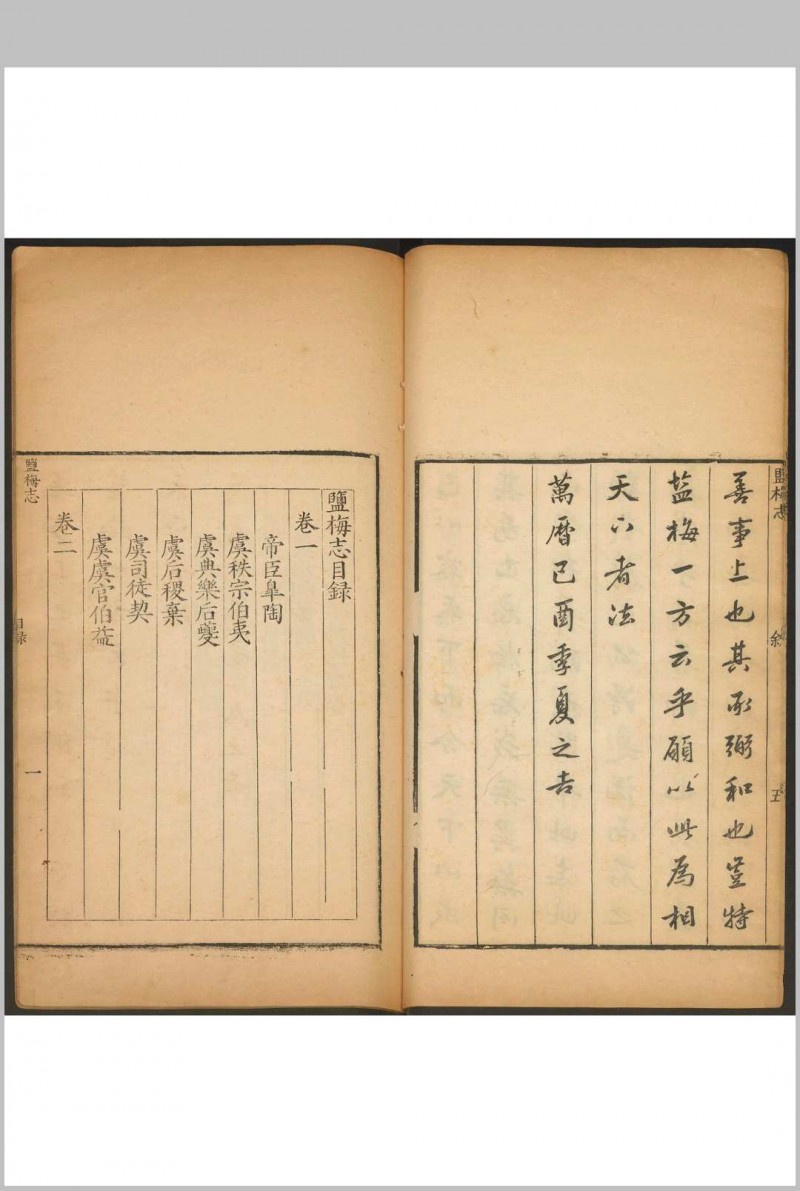 鹽梅志
叙
五
善事上也其承弼和也豈特
盐梅一方云乎願以此為相
天下者法
萬曆己酉季夏之吉
鹽梅志目録
卷一
帝臣臯陶
虞秩宗伯夷
虞典樂后夔
虞后稷棄
虞司徒契
虞虞官伯益
卷二
鹽梅志
目録
一